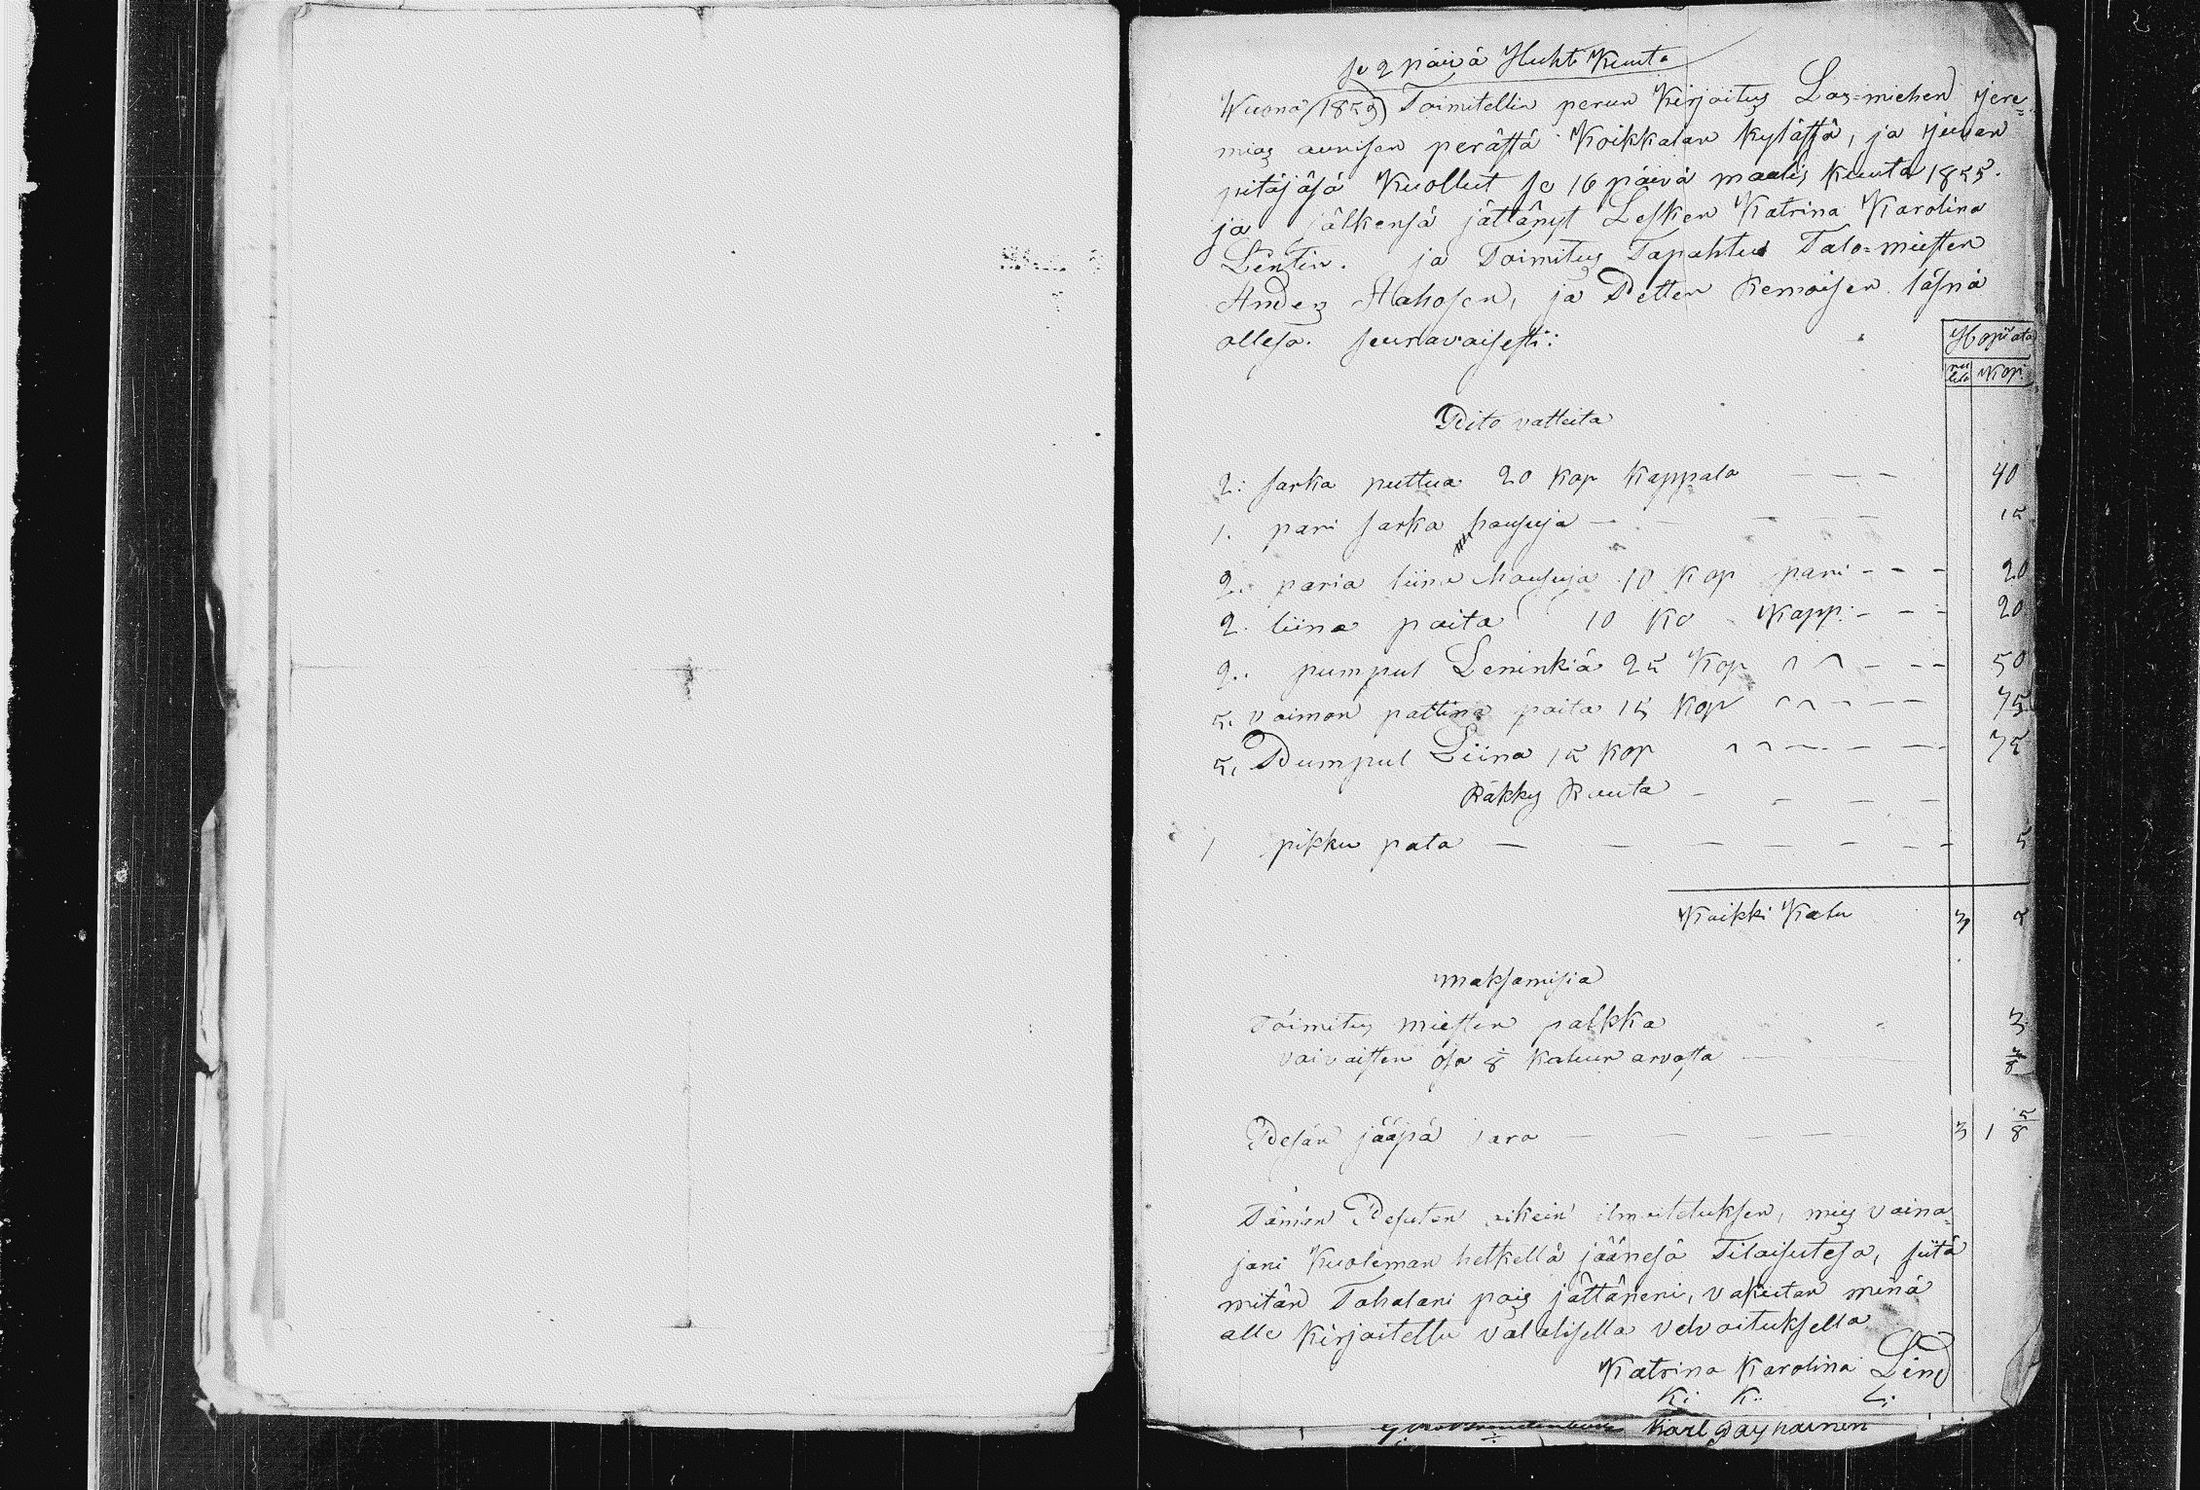 se 2 päivä Huhti Kuuta
Wuona 1859 Toimitellin perun Kirjoitus Los=miehen Jere=
mias aunisen perästä Koikkalan kylässä, ja Juvan
pitäjäsä Kuollut se 16 päivä maalis kuuta 1855.
ja jälkensä jättänyt Lesken Katrina Karolina
Lintin. ja Toimitus Tapahtui Talo=miesten
Anders Hahosen, ja Petter Remoisen läsnä
ollesa. seuravaisesti:
Hopiata
rupla Kop.
Pito vatteita
2: sarka puttua 20 kop kappale — — — 40
1. pari sarka housuja — — — — 15
2. paria liina housuja 10 kop pari - - - 20
2. liina paita 10 Ko Kapp: - - - 20
2. pumpul Leninkiä 25 Kop " " - - - 50
5. vaimon paltina paita 15 Kop " " - - - 75
5. Pumpul Liina 15 kop " " - - - 75
Räkky Rauta - - - -
1 pikku pata — — — — — — 5
Kaikki Kalu 3 5
maksamisia
Toimitus miesten palkka 3
vaivaisten osa 1/8 kaluun arvosta
Pesän jääpä vara — — — — 3 1 5/8
Tämän Pesuten oikein ilmoitetuksen, mies vaina=
jani Kuoleman hetkellä jäänesä Tilaisutesa, siitä
mitän Tahalani pois jättäneni, vakuutan minä
alle kirjoitettu valalisella velvoituksella
Katrina Karolina Lind
K: K: L:
Karl Däyhainen